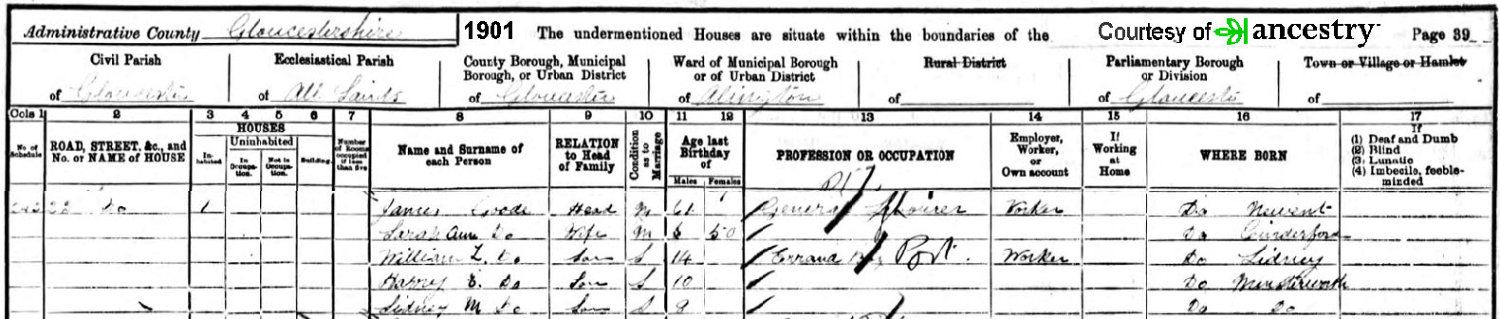 Administrative County Gloucestershire 1901 The undermentioned Houses are situate within the boundaries of the Courtesy of ancestry Page 39
Civil Parish Ecclesiastical Parish County Borough, Municipal Borough, or Urban District Ward of Municipal Borough or of Urban District Rural District Parliamentary Borough or Division Town or Village or Hamlet
of Gloucester of All Saints of Gloucester of of of of
Cols 1 2 3 4 5 6 7 8 9 10 11 12 13 14 15 16 17
No. of Schedule ROAD, STREET, &c., and No. or NAME of HOUSE HOUSES Inhabited Uninhabited In Occupation. Not in Occupation. Building. Number of Rooms occupied if less than five Name and Surname of each Person RELATION to Head of Family Condition as to Marriage Age last Birthday of Males Females PROFESSION OR OCCUPATION Employer, Worker, or Own account If Working at Home WHERE BORN If (1) Deaf and Dumb (2) Blind (3) Lunatic (4) Imbecile, feeble-minded
22 Do 1 James Goode Head M 61 General Worker Do Newent
Sarah Ann Do Wife M 50 Do Cinderford
William L. Do Son S 14 Errand Boy Port. Worker Do Lidney
Harry E. Do Son S 10 Do Minsterworth
Sidney M Do Son S 8 Do Do